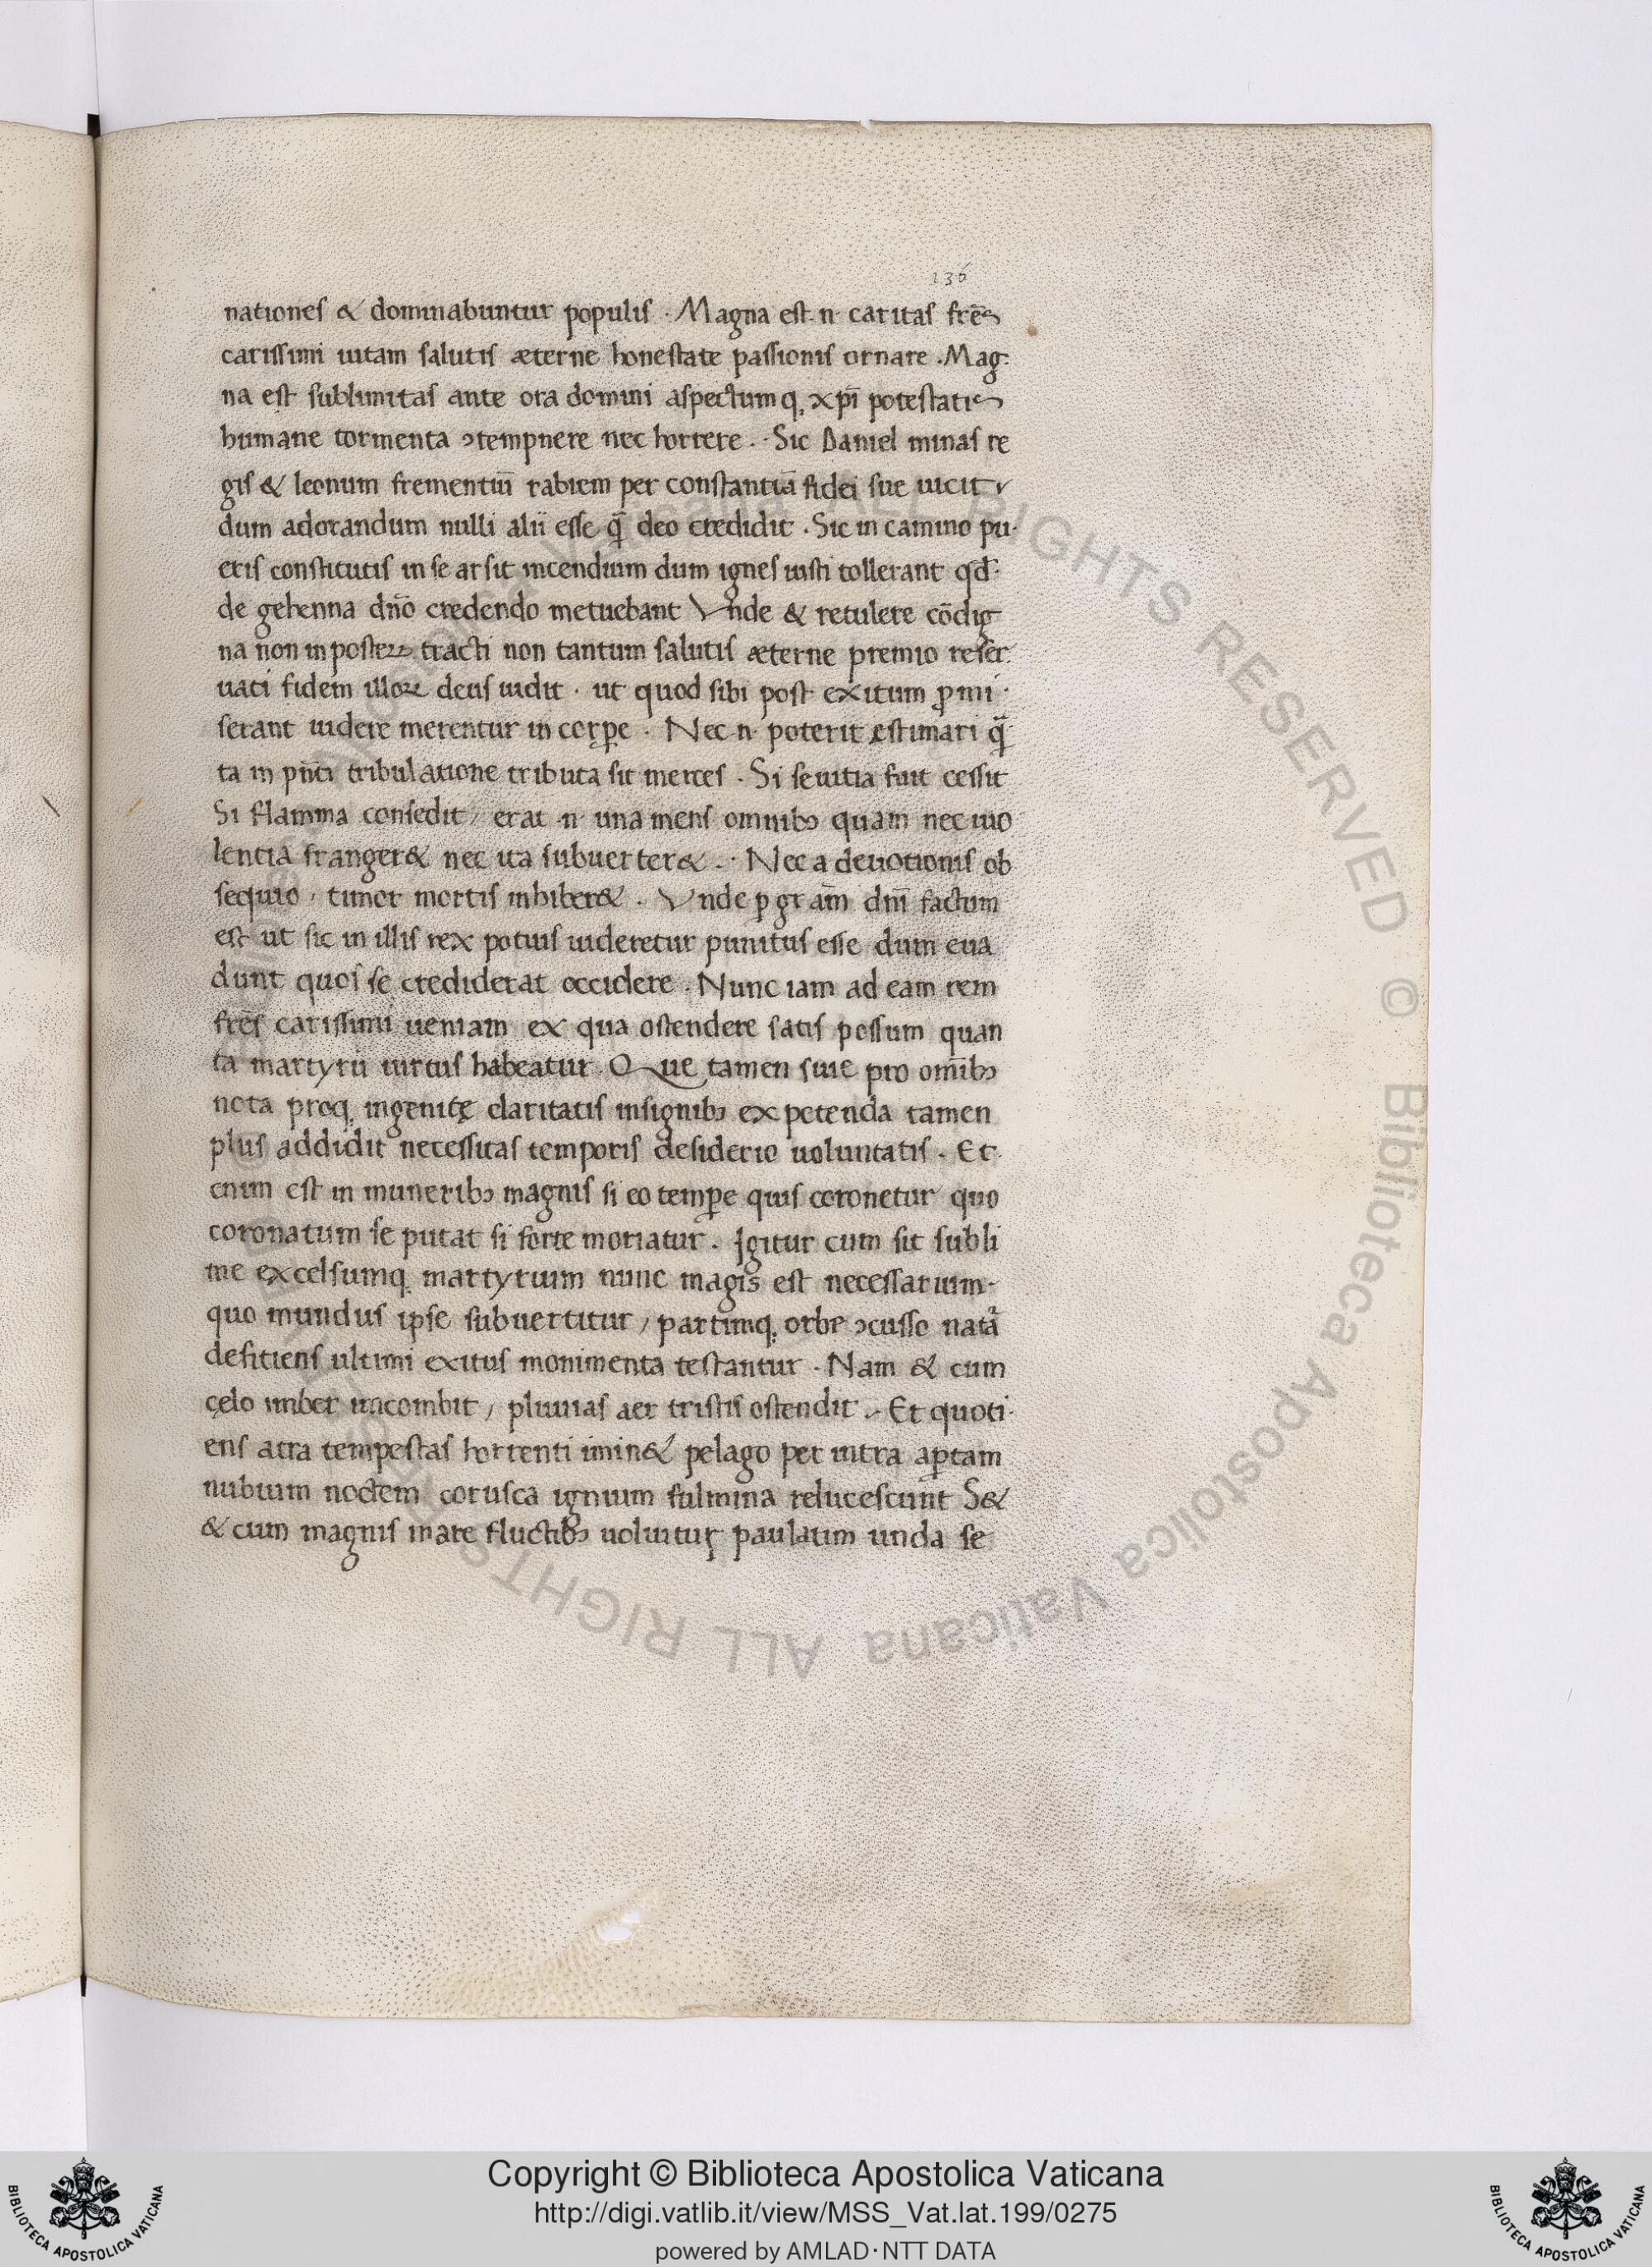 136
nationes & dominabuntur populis · Magna est .n. caritas frēs
carissimi uitam salutis æterne honestate passionis ornare . Mag:
na est sublimitas ante ora domini aspectumq, xp̄i potestatis
humane tormenta ↄtempnere nec horrere . Sic Daniel minas re
gis & leonum frementiū rabiem per constantiā fidei sue uicit
dum adorandum nulli alii esse q̄ deo credidit . Sic in camino pu·
eris constitutis in se arsit incendium dum ignes iusti tollerant qd̄·
de gehenna dn̄o credendo metuebant Vnde & retulere cōdig
na non in posteꝝ tracti non tantum salutis æterne premio reser:
uati fidem illoꝝ deus uidit · ut quod sibi post exitum ꝓmi·
serant uidere merentur in corꝑe · Nec .n. poterit estimari q̄
ta in pn̄ti tribulatione tributa sit merces . Si seuitia fuit cessit
Si flamma consedit / erat .n. una mens omnibꝫ quam nec uio
lentia franger& nec ita subuerter& . Nec a deuotionis ob
sequio / timor mortis inhiber& . Vnde ꝑ gr̄am dn̄i factum
est ut sic in illis rex potius uideretur punitus esse dum eua
dunt quos se crediderat occidere . Nunc iam ad eam rem
frēs carissimi ueniam ex qua ostendere satis possum quan
ta martyrii uirtus habeatur . Que tamen siue pro omībꝫ
nota proq, ingenitę claritatis insignibꝫ expetenda tamen
plus addidit necessitas temporis desiderio uoluntatis . Et·
enim est in muneribꝫ magnis si eo temꝑe quis coronetur quo
coronatum se putat si forte moriatur . Igitur cum sit subli
me excelsumq, martyrium nunc magis est necessarium·
quo mundus ipse subuertitur / partimq, orbe ↄcusso natā
defitiens ultimi exitus monimenta testantur . Nam & cum
cęlo imber incombit / pluuias aer tristis ostendit . Et quoti·
ens atra tempestas horrenti īmin& pelago per intra aꝑtam
nubium noctem corusca ignium fulmina relucescunt S&
& cum magnis mare fluctibꝫ uoluitur paulatim unda se
Copyright © Biblioteca Apostolica Vaticana
http://digi.vatlib.it/view/MSS_Vat.lat.199/0275
powered by AMLAD·NTT DATA
BIBLIOTECA APOSTOLICA VATICANA
BIBLIOTECA APOSTOLICA VATICANA
© Biblioteca Apostolica Vaticana ALL RIGHTS RESERVED